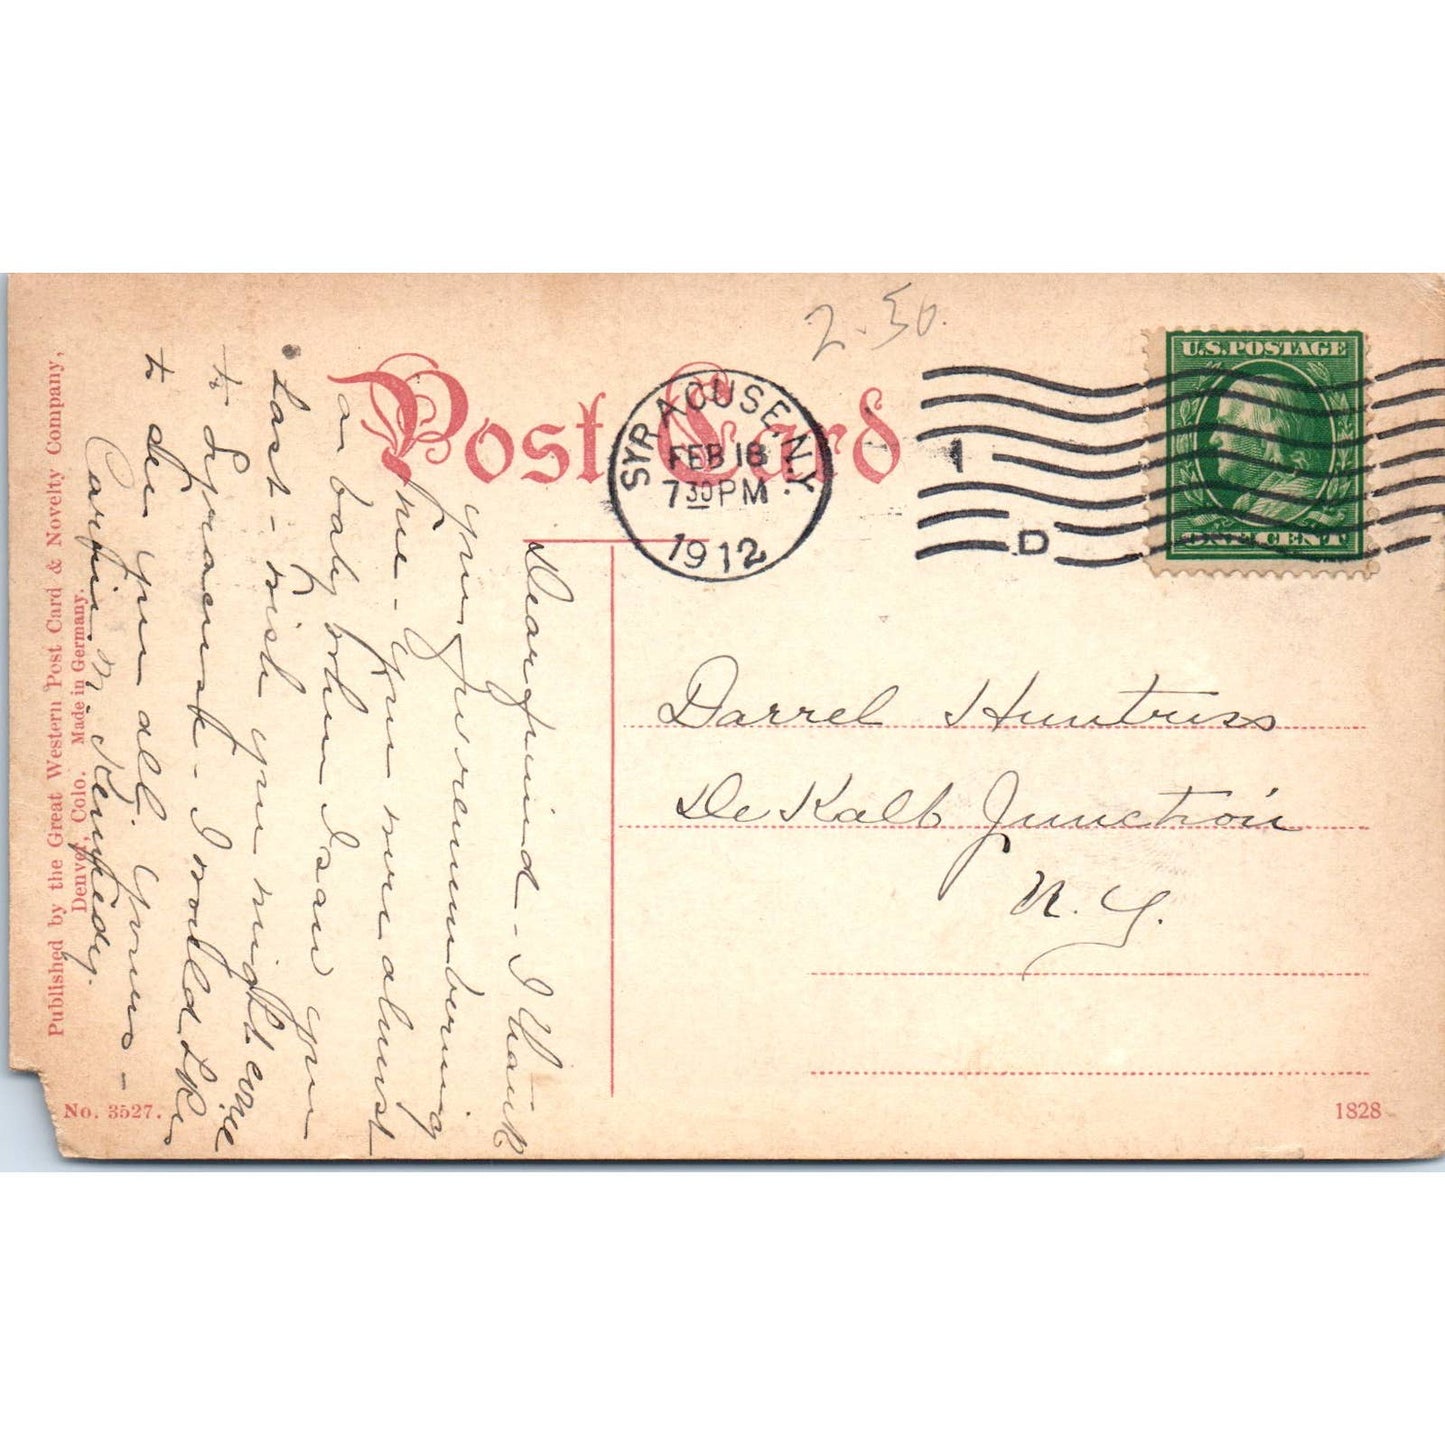 2.50
Post Card
SYRACUSE, N.Y.
FEB 18
7 30 PM
1912
1
D
U.S. POSTAGE
ONE CENT
Dear friend - I thank
you for remembering
me - you were almost
a baby when I saw you
last - wish you might come
to Syracuse - I would like
to see you all. Yours -
M. Kennedy.
Darrel Huntress
De Kalb Junction
N. Y.
Published by the Great Western Post Card & Novelty Company,
Denver, Colo. Made in Germany.
No. 3527.
1828